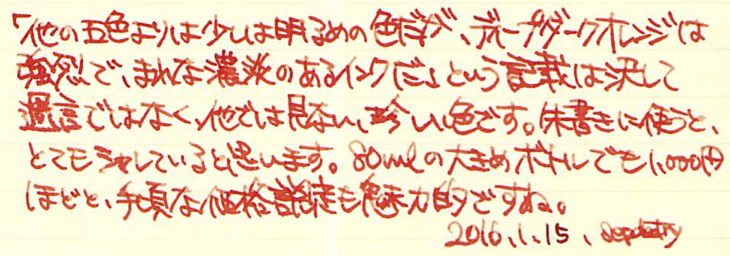 「他の五色よりは少しは明るめの色だが、ディープダークオレンジは
強烈で、まれな濃淡のあるインクだ」という記載は決して
過言ではなく、他では見ない、珍しい色です。朱書きに使うと、
とてもシャレていると思います。80mlの大きめボトルでも1,000円
ほどと、手頃な価格設定も魅力的ですね。
2016.1.15、